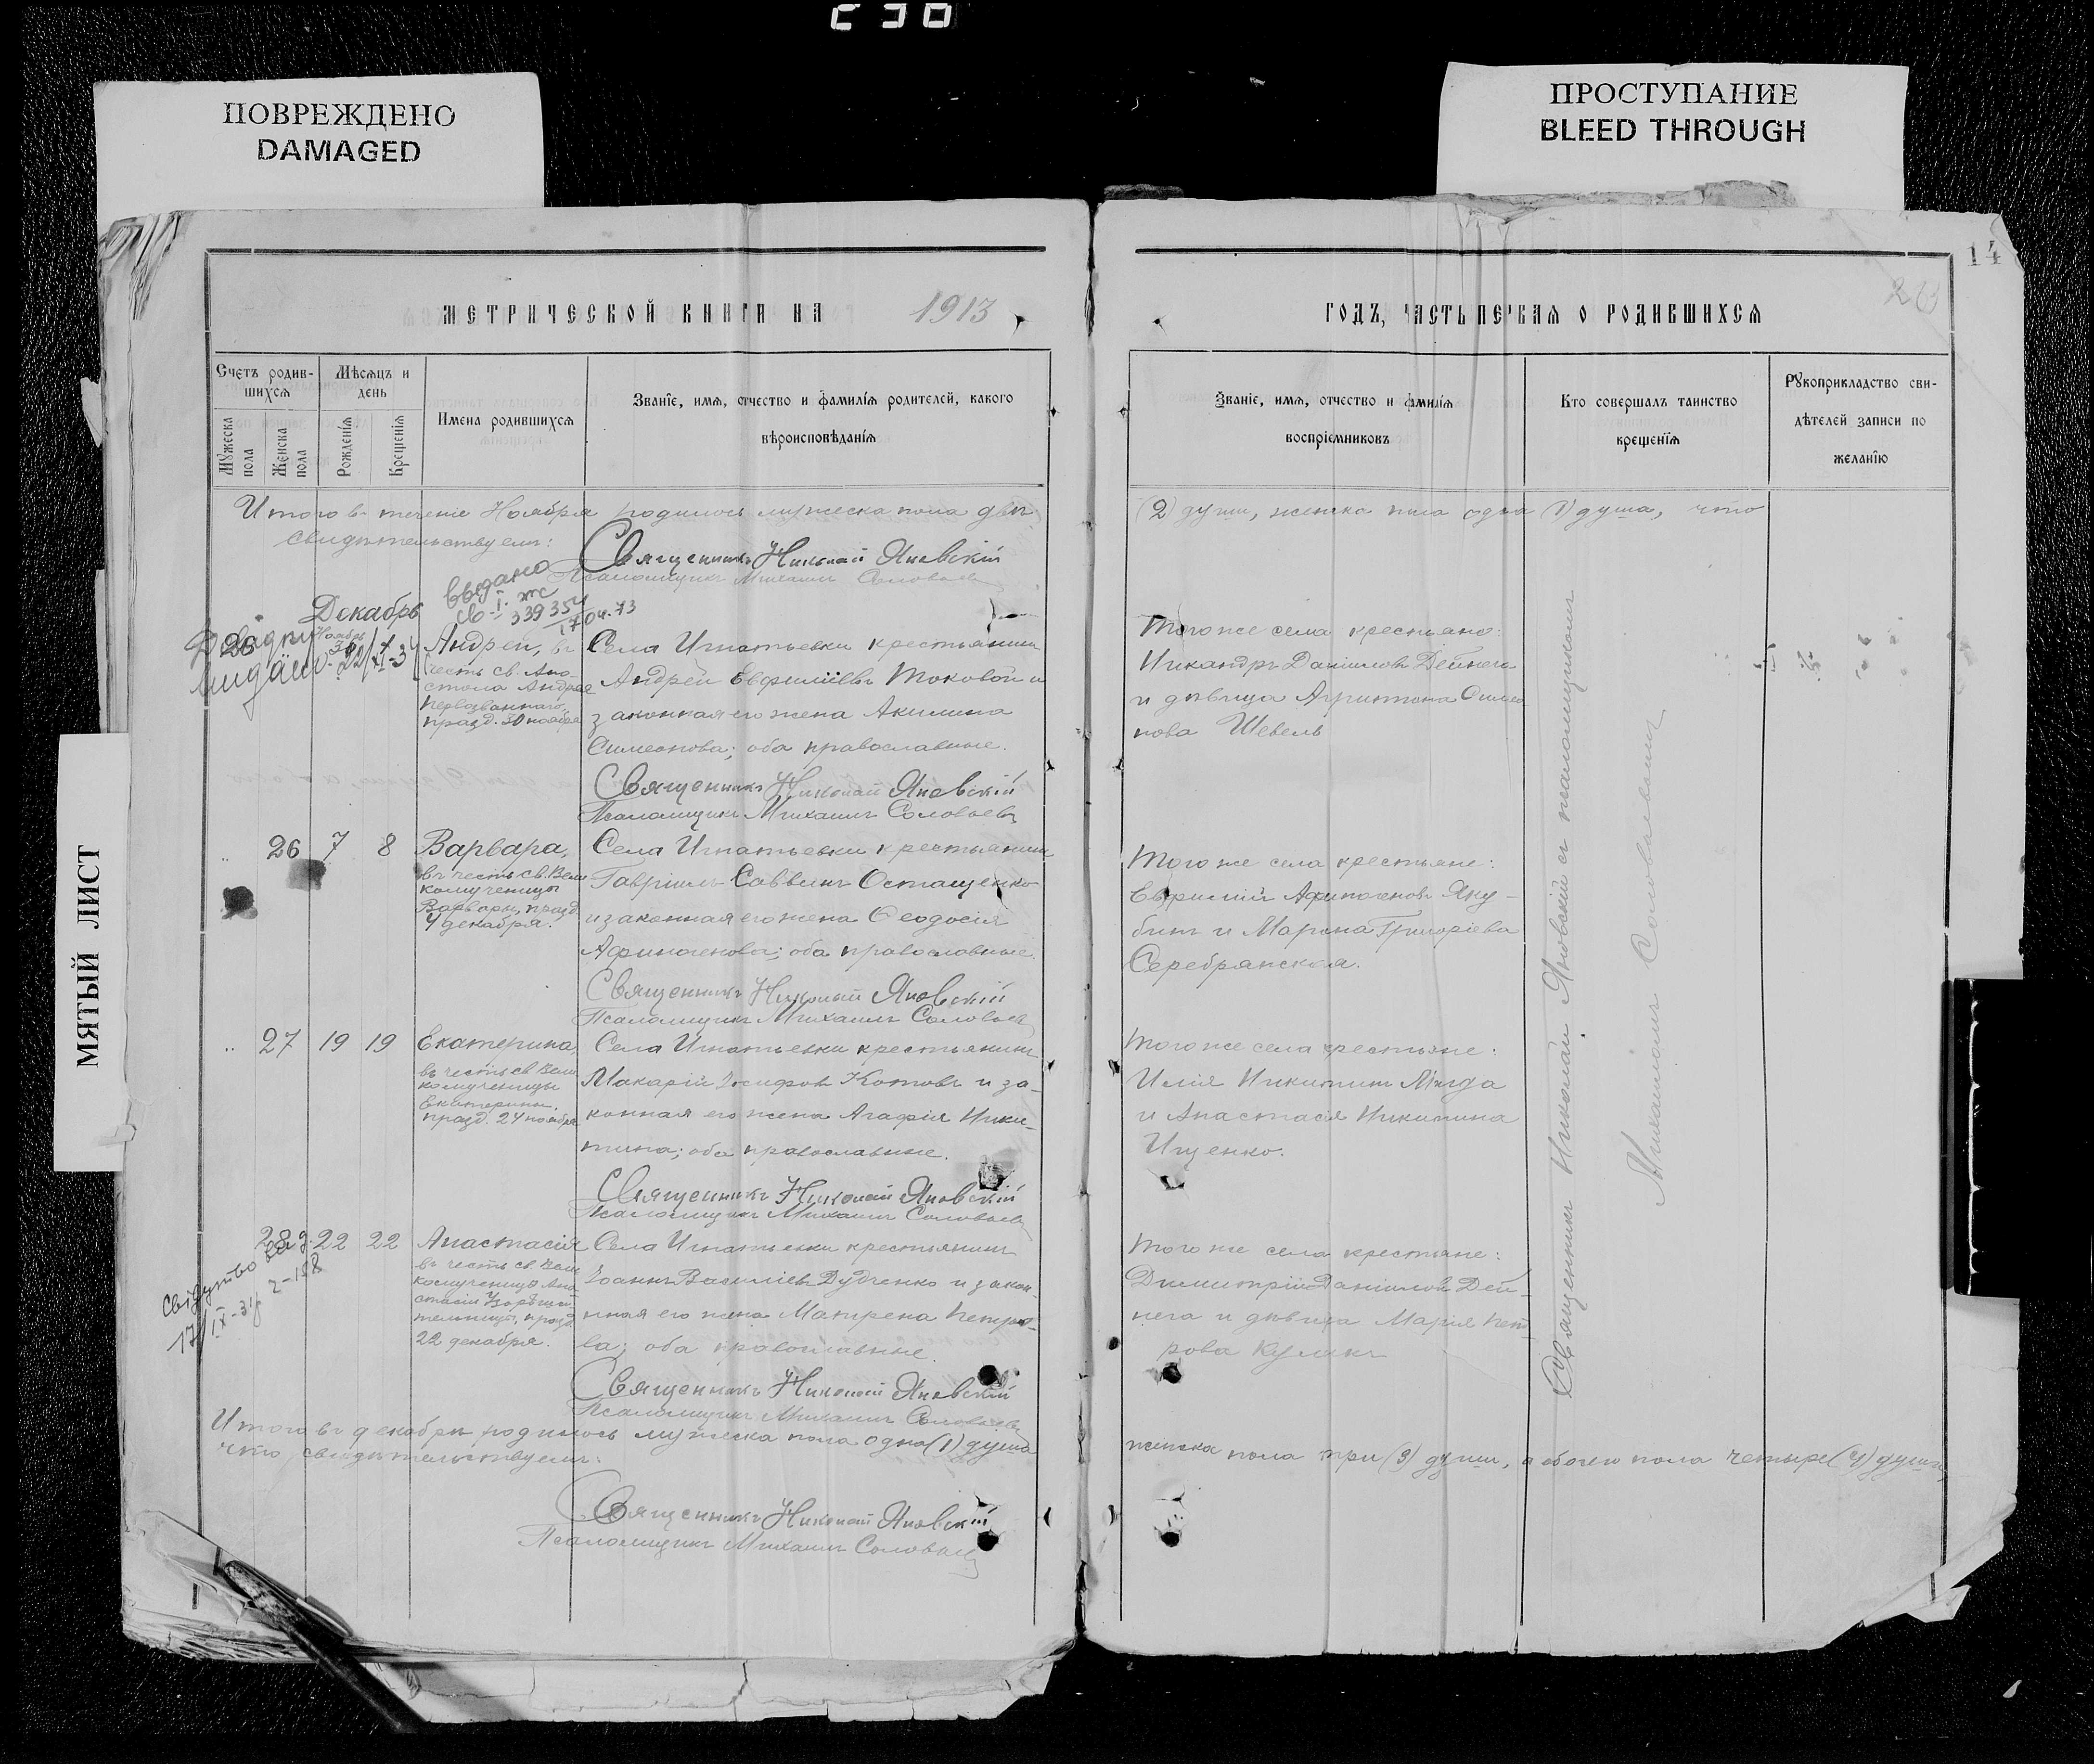 ПОВРЕЖДЕНО
DAMAGED
ПРОСТУПАНИЕ
BLEED THROUGH
МЯТЫЙ ЛИСТ
14
МЕТРИЧЕСКОЙ КНИГИ НА 1913
ГОДЪ, ЧАСТЬ ПЕРВАЯ О РОДИВШИХСЯ
Счетъ родив-
шихся
Мужеска
пола
Женска
пола
Мѣсяцъ и
день
Рожденія
Крещенія
Имена родившихся
Званіе, имя, отчество и фамилія родителей, какого
вѣроисповѣданія
Званіе, имя, отчество и фамилія
воспріемниковъ
Кто совершалъ таинство
крещенія
Рукоприкладство сви-
дѣтелей записи по
желанію
Итого въ теченіе Ноября родилось мужеска пола двѣ
(2) души, женска пола одна (1) душа, что
свидѣтельствуемъ:
Священникъ Николай Яновскій
Псаломщикъ Михаилъ Соловьевъ
Декабрь
выдано
Ноябрь
Андрей, въ
честь св. Апо-
стола Андрея
Первозваннаго,
празд. 30 ноября
Села Игнатьевки крестьянинъ
Андрей Евфиміевъ Токовой и
законная его жена Акилина
Симеонова; оба православные.
Священникъ Николай Яновскій
Псаломщикъ Михаилъ Соловьевъ
Того же села крестьяне:
Никандръ Даніиловъ Дейнега
и дѣвица Агрипина Симео
нова Шевель
26 7 8 Варвара,
въ честь св. Вели
комученицы
Варвары, празд.
4 декабря.
Села Игнатьевки крестьянинъ
Гавріилъ Саввинъ Остащенко
и законная его жена Ѳеодосія
Афиногенова; оба православные.
Священникъ Николай Яновскій
Псаломщикъ Михаилъ Соловьевъ
Того же села крестьяне:
Евфимій Афиногеновъ Яку-
бинъ и Марина Григоріева
Серебрянская.
27 19 19 Екатерина,
въ честь св. Вели
комученицы
Екатерины,
празд. 24 ноября
Села Игнатьевки крестьянинъ
Макарій Іосифовъ Котовъ и за-
конная его жена Агафія Ники-
тина; оба православные.
Священникъ Николай Яновскій
Псаломщикъ Михаилъ Соловьевъ
Того же села крестьяне:
Илія Никитинъ
и Анастасія Никитина
Ищенко.
28 22 22 Анастасія
въ честь св. Вели
комученицы Ана-
стасіи Узорѣши-
тельницы, празд.
22 декабря.
Села Игнатьевки крестьянинъ
Іоаннъ Василіевъ Дудченко и закон-
ная его жена Матрена Петро-
ва; оба православные.
Священникъ Николай Яновскій
Псаломщикъ Михаилъ Соловьевъ
Того же села крестьяне:
Димитрій Даніиловъ Дей-
нега и дѣвица Марія Пет-
рова Куликъ
Священникъ Николай Яновскій съ псаломщикомъ
Михаиломъ Соловьевымъ
Итого въ декабрѣ родилось мужеска пола одна (1) душа
женска пола три (3) души, а обоего пола четыре (4) души,
что свидѣтельствуемъ:
Священникъ Николай Яновскій
Псаломщикъ Михаилъ Соловьевъ